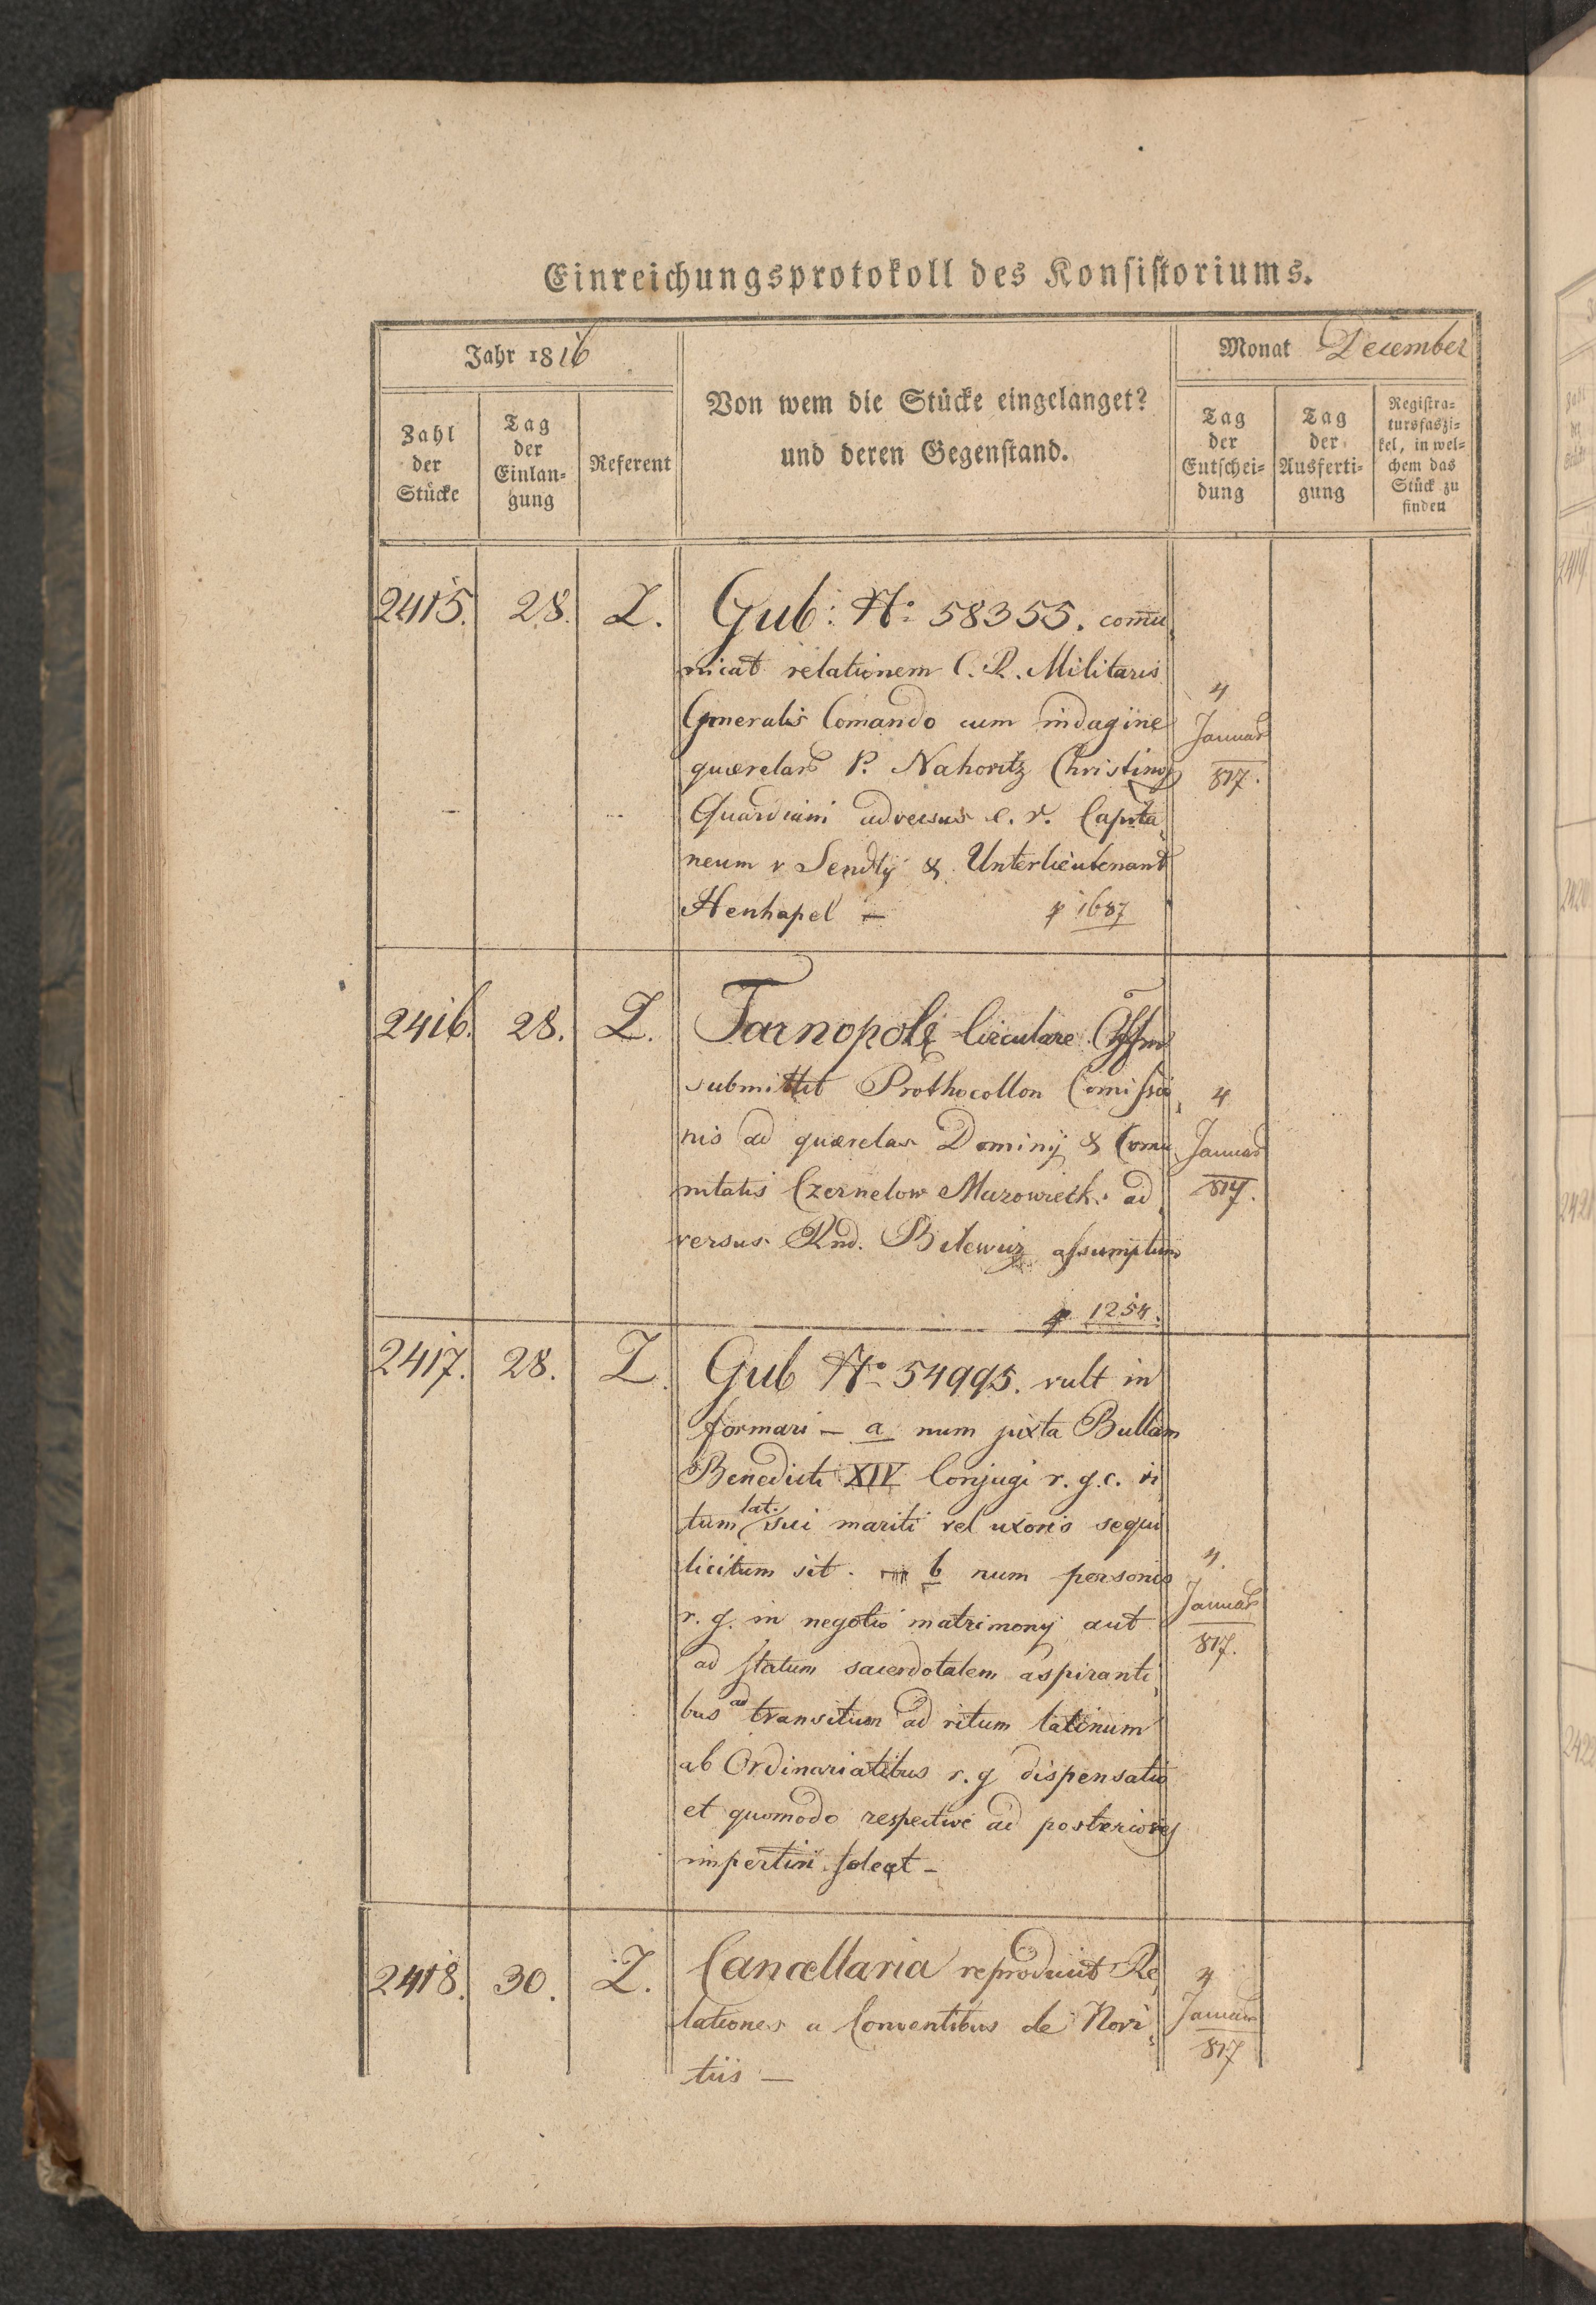 Einreichungsprotokoll des Konsistoriums.
Jahr 1816
Monat December
Zahl der Stücke
Tag der Einlan- gung
Referent
Von wem die Stücke eingelanget?
und deren Gegenstand.
Tag der Entschei- dung
Tag der Ausferti- gung
Registra- tursfaszi- kel, in wel- chem das Stück zu finden
2415. 28. Z. Gub: No 58355. comu
nicat relationem C. R. Militaris
Generalis Comando cum indagine
quærelar P. Nahoritz Christinop
Quardiani adversus c. r. Capita
neum v Sendly & Unterlieutenant
Henhapel — p 1687
4
Januar
817.
2416. 28. Z. Tarnopoli Circulare Offm
submittit Prothocollon Comissio
nis ad quærelas Dominij & Comu
nitatis Czernelow Murowieck. ad
versus Rnd. Bilewicz assumptum
p 1254.
4
Januar
817.
2417. 28. Z. Gub No 54995. vult in
formari — a num juxta Bullam
Benedicti XIV Conjugi r. g. c. ri
tum lat. sui mariti vel uxoris sequi
licitum sit. b num personis
r. g. in negotio matrimonij aut
ad statum sacerdotalem aspiranti
bus ad transitum ad ritum latinum
ab Ordinariatibus r. g dispensatio
et quomodo respective ad posteriores
impertiri soleat —
4.
Januar
817.
2418. 30. Z. Cancellaria reproducit Re
lationes a Conventibus de Novi
tiis —
4
Januar
817